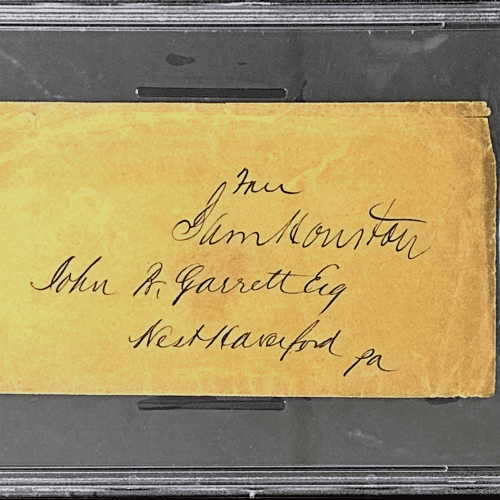 Free
Sam Houston
John W. Garrett Esq
West Haverford pa